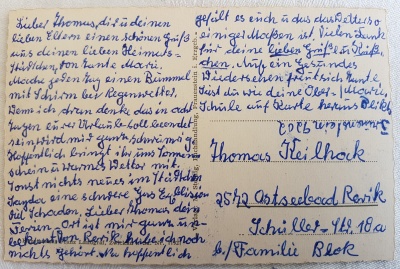 Lieber Thomas, dir u deinen
lieben Eltern einen schönen Gruß
aus deinen lieben Heimats-
städtchen, von Tante Marie.
Mache jeden Tag einen Bummel
mit Schirm bei Regenwetter.
Wenn ich dran denke das in acht
Tagen eurer Urlaub soll beendet
sein wird mir ganz schwummrig
Hoffentlich bringt ihr uns Sonnen
schein u warmes Wetter mit.
Sonst nichts neues im Städtchen
Sayda eine schwere Gas Explosion
viel Schaden. Lieber Thomas dein
Ferien-Ort ist mir ganz un-
bekannt von Rerik habe ich noch
nichts gehört. Na hoffentlich
gefält es euch u das das Wetter so
einiger maßen ist. Vielen Dank
für deine lieben Grüße u Küß
chen. Auf ein Gesundes
Wiedersehen freut sich Tante
Marie
Thomas Keilhack
2572 Ostseebad Rerik
Schiller-Str. 10a
b./Familie Blok